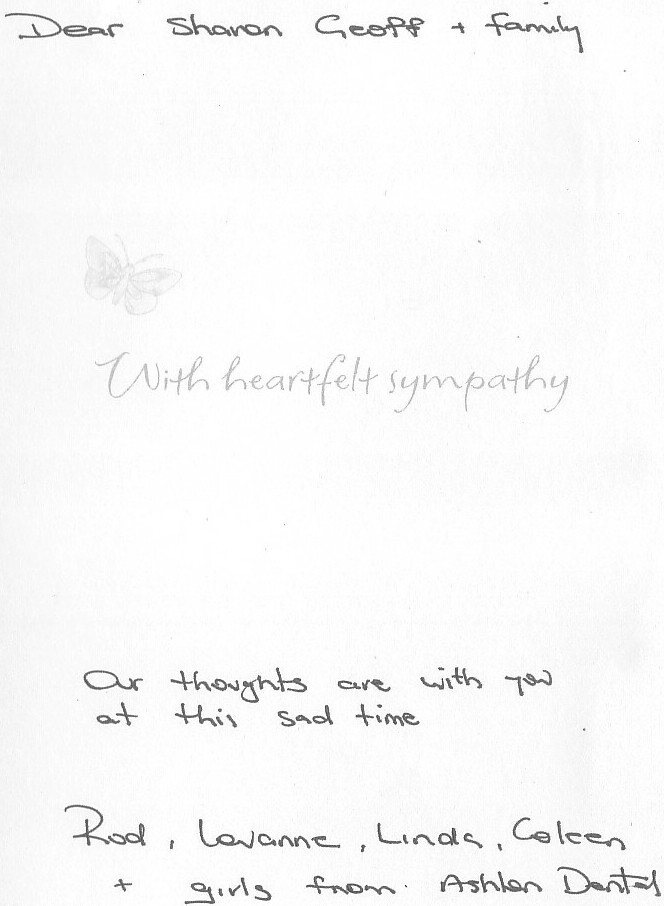 Dear Sharon Geoff + family
With heartfelt sympathy
Our thoughts are with you
at this sad time
Rod, Lovanne, Linda, Coleen
+ girls from Ashlen Dental